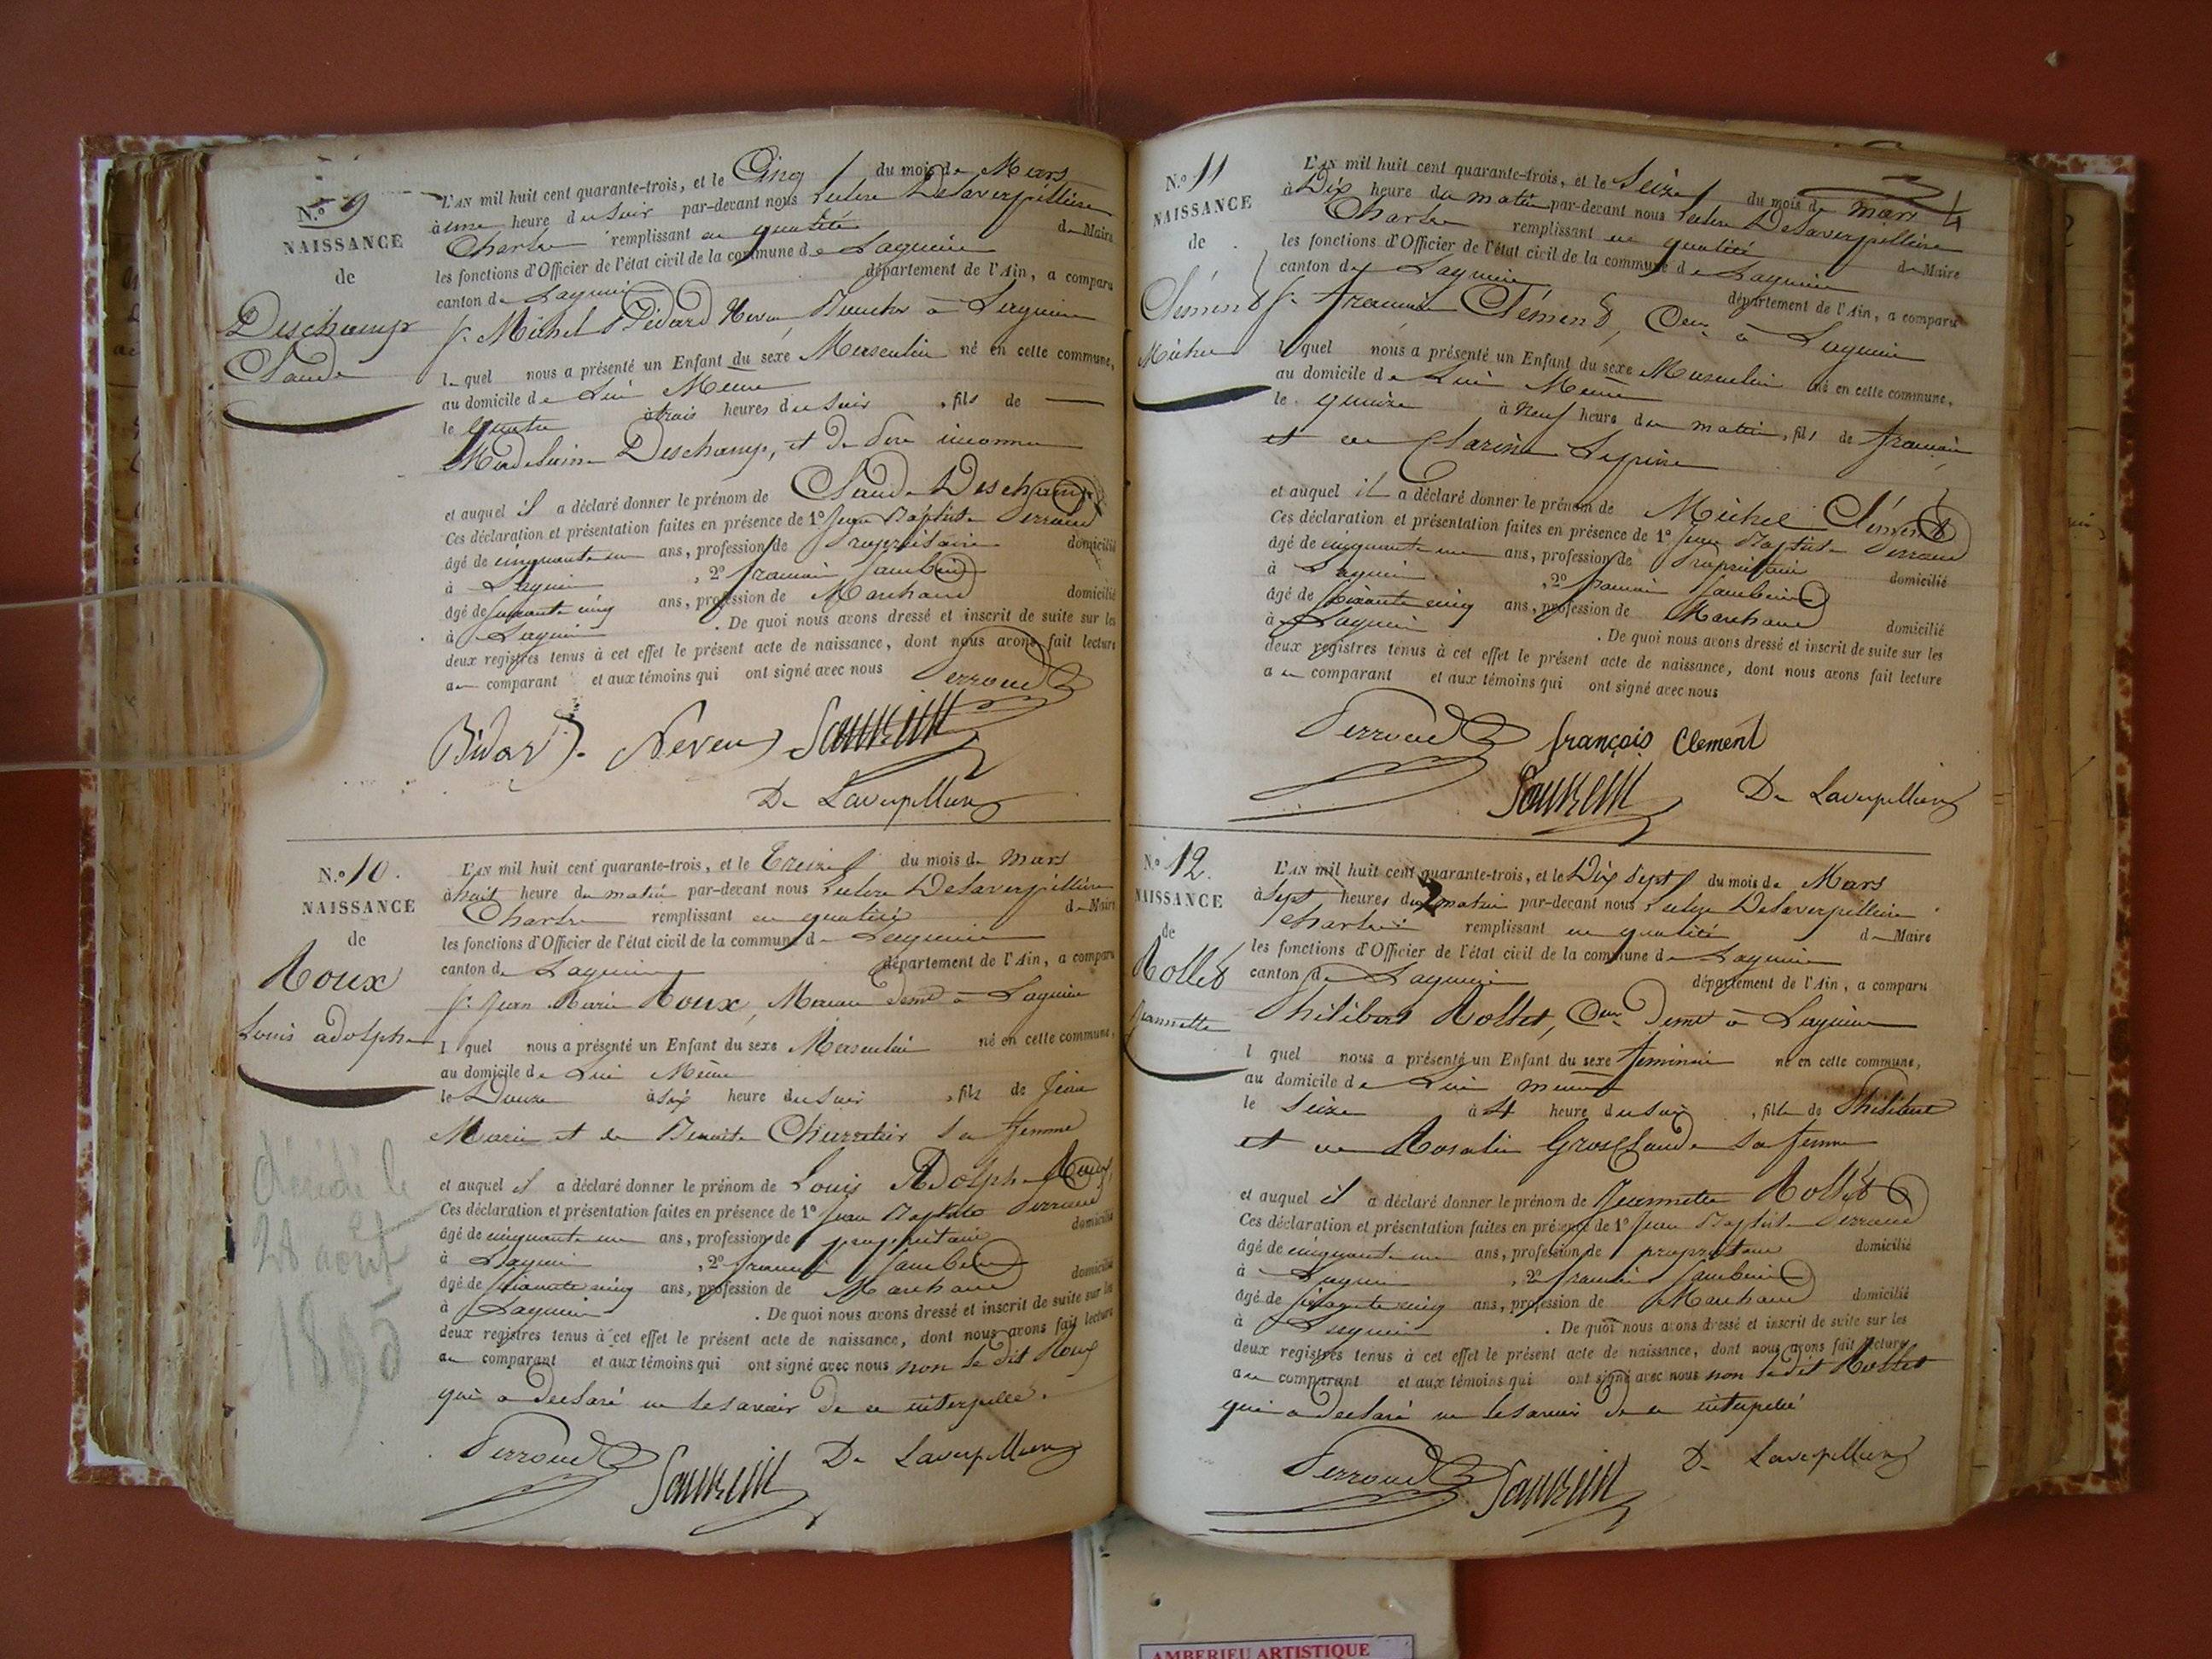 N.º 9
NAISSANCE
de
Deschamp
Claude
L'AN mil huit cent quarante-trois, et le Cinq du mois de Mars
à une heure du soir par-devant nous Delaverpillière
Charles remplissant en qualité de Maire
les fonctions d'Officier de l'état civil de la commune de Lagnieu
canton de Lagnieu département de l'Ain, a comparu
Sr. Michel à Lagnieu
lequel nous a présenté un Enfant du sexe Masculin né en cette commune,
au domicile de Lui Même
le quatre à trois heures du soir, fils de
Madelaine Deschamp, et de père inconnu
et auquel il a déclaré donner le prénom de Claude Deschamp
Ces déclaration et présentation faites en présence de 1º Jean Baptiste Perroud
âgé de cinquante un ans, profession de Propriétaire domicilié
à Lagnieu, 2º françois
âgé de soixante cinq ans, profession de Marchand domicilié
à Lagnieu. De quoi nous avons dressé et inscrit de suite sur les
deux registres tenus à cet effet le présent acte de naissance, dont nous avons fait lecture
au comparant et aux témoins qui ont signé avec nous Perroud
Neveu
De Laverpilliere
N.º 10.
NAISSANCE
de
Roux
Louis adolphe
décédé le
28 août
L'AN mil huit cent quarante-trois, et le Treize du mois de Mars
à huit heure du matin par-devant nous Delaverpillière
Charles remplissant en qualité de Maire
les fonctions d'Officier de l'état civil de la commune de Lagnieu
canton de Lagnieu département de l'Ain, a comparu
Sr. Jean Marie Roux, demt à Lagnieu
lequel nous a présenté un Enfant du sexe Masculin né en cette commune,
au domicile de Lui Même
le Douze à six heure du soir, fils de Jean
Marie et de Benoite sa femme
et auquel il a déclaré donner le prénom de Louis Adolphe Roux
Ces déclaration et présentation faites en présence de 1º Jean Baptiste Perroud
âgé de cinquante un ans, profession de propriétaire domicilié
à Lagnieu, 2º françois
âgé de soixante cinq ans, profession de Marchand domicilié
à Lagnieu. De quoi nous avons dressé et inscrit de suite sur les
deux registres tenus à cet effet le présent acte de naissance, dont nous avons fait lecture
au comparant et aux témoins qui ont signé avec nous non le dit Roux
qui a déclaré ne le savoir de ce interpellé.
Perroud De Laverpilliere
N.º 11
NAISSANCE
de
Clément
Michel
L'AN mil huit cent quarante-trois, et le Seize du mois de mars
à Dix heure du matin par-devant nous Delaverpillière
Charles remplissant en qualité de Maire
les fonctions d'Officier de l'état civil de la commune de Lagnieu
canton de Lagnieu département de l'Ain, a comparu
Sr. françois Clément, à Lagnieu
lequel nous a présenté un Enfant du sexe Masculin né en cette commune,
au domicile de Lui Même
le quinze à Neuf heure du matin, fils de françois
et de
et auquel il a déclaré donner le prénom de Michel Clément
Ces déclaration et présentation faites en présence de 1º Jean Baptiste Perroud
âgé de cinquante un ans, profession de Propriétaire domicilié
à Lagnieu, 2º françois
âgé de soixante cinq ans, profession de Marchand domicilié
à Lagnieu. De quoi nous avons dressé et inscrit de suite sur les
deux registres tenus à cet effet le présent acte de naissance, dont nous avons fait lecture
au comparant et aux témoins qui ont signé avec nous
Perroud françois Clement
De Laverpilliere
N.º 12.
NAISSANCE
de
Rollet
Jeannette
L'AN mil huit cent quarante-trois, et le Dix Sept du mois de Mars
à sept heures du matin par-devant nous Delaverpillière
2
Charles remplissant en qualité de Maire
les fonctions d'Officier de l'état civil de la commune de Lagnieu
canton de Lagnieu département de l'Ain, a comparu
Philibert Rollet, demt à Lagnieu
lquel nous a présenté un Enfant du sexe féminin né en cette commune,
au domicile de Lui même
le Seize à 4 heure du soir, fille de Philibert
et de Rosalie GrosClaude sa femme
et auquel il a déclaré donner le prénom de Jeannette Rollet
Ces déclaration et présentation faites en présence de 1º Jean Baptiste Perroud
âgé de cinquante un ans, profession de propriétaire domicilié
à Lagnieu, 2º françois
âgé de soixante cinq ans, profession de Marchand domicilié
à Lagnieu. De quoi nous avons dressé et inscrit de suite sur les
deux registres tenus à cet effet le présent acte de naissance, dont nous avons fait lecture
au comparant et aux témoins qui ont signé avec nous non le dit Rollet
qui a déclaré ne le savoir de ce interpellé
Perroud De Laverpilliere
AMBERIEU ARTISTIQUE